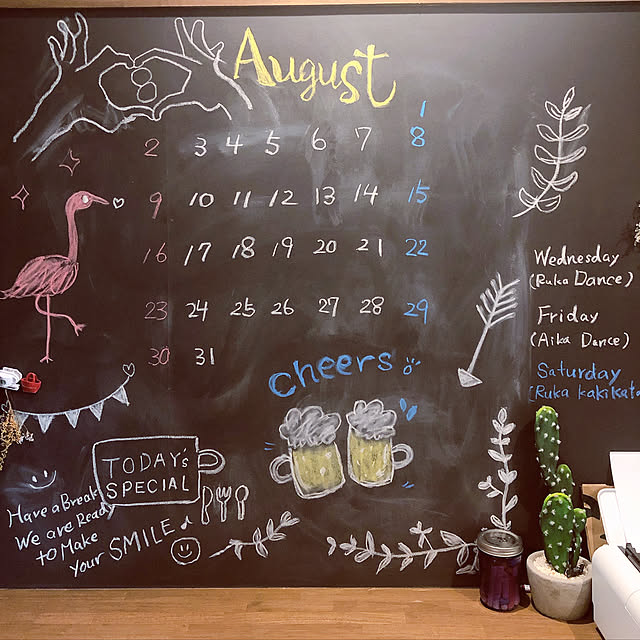 August
1
2 3 4 5 6 7 8
9 10 11 12 13 14 15
16 17 18 19 20 21 22
23 24 25 26 27 28 29
30 31
Wednesday
(Ruka Dance)
Friday
(Aika Dance)
Saturday
(Ruka kakikata
cheers
TODAY's
SPECIAL
Have a Break
We are Ready
to Make
your SMILE